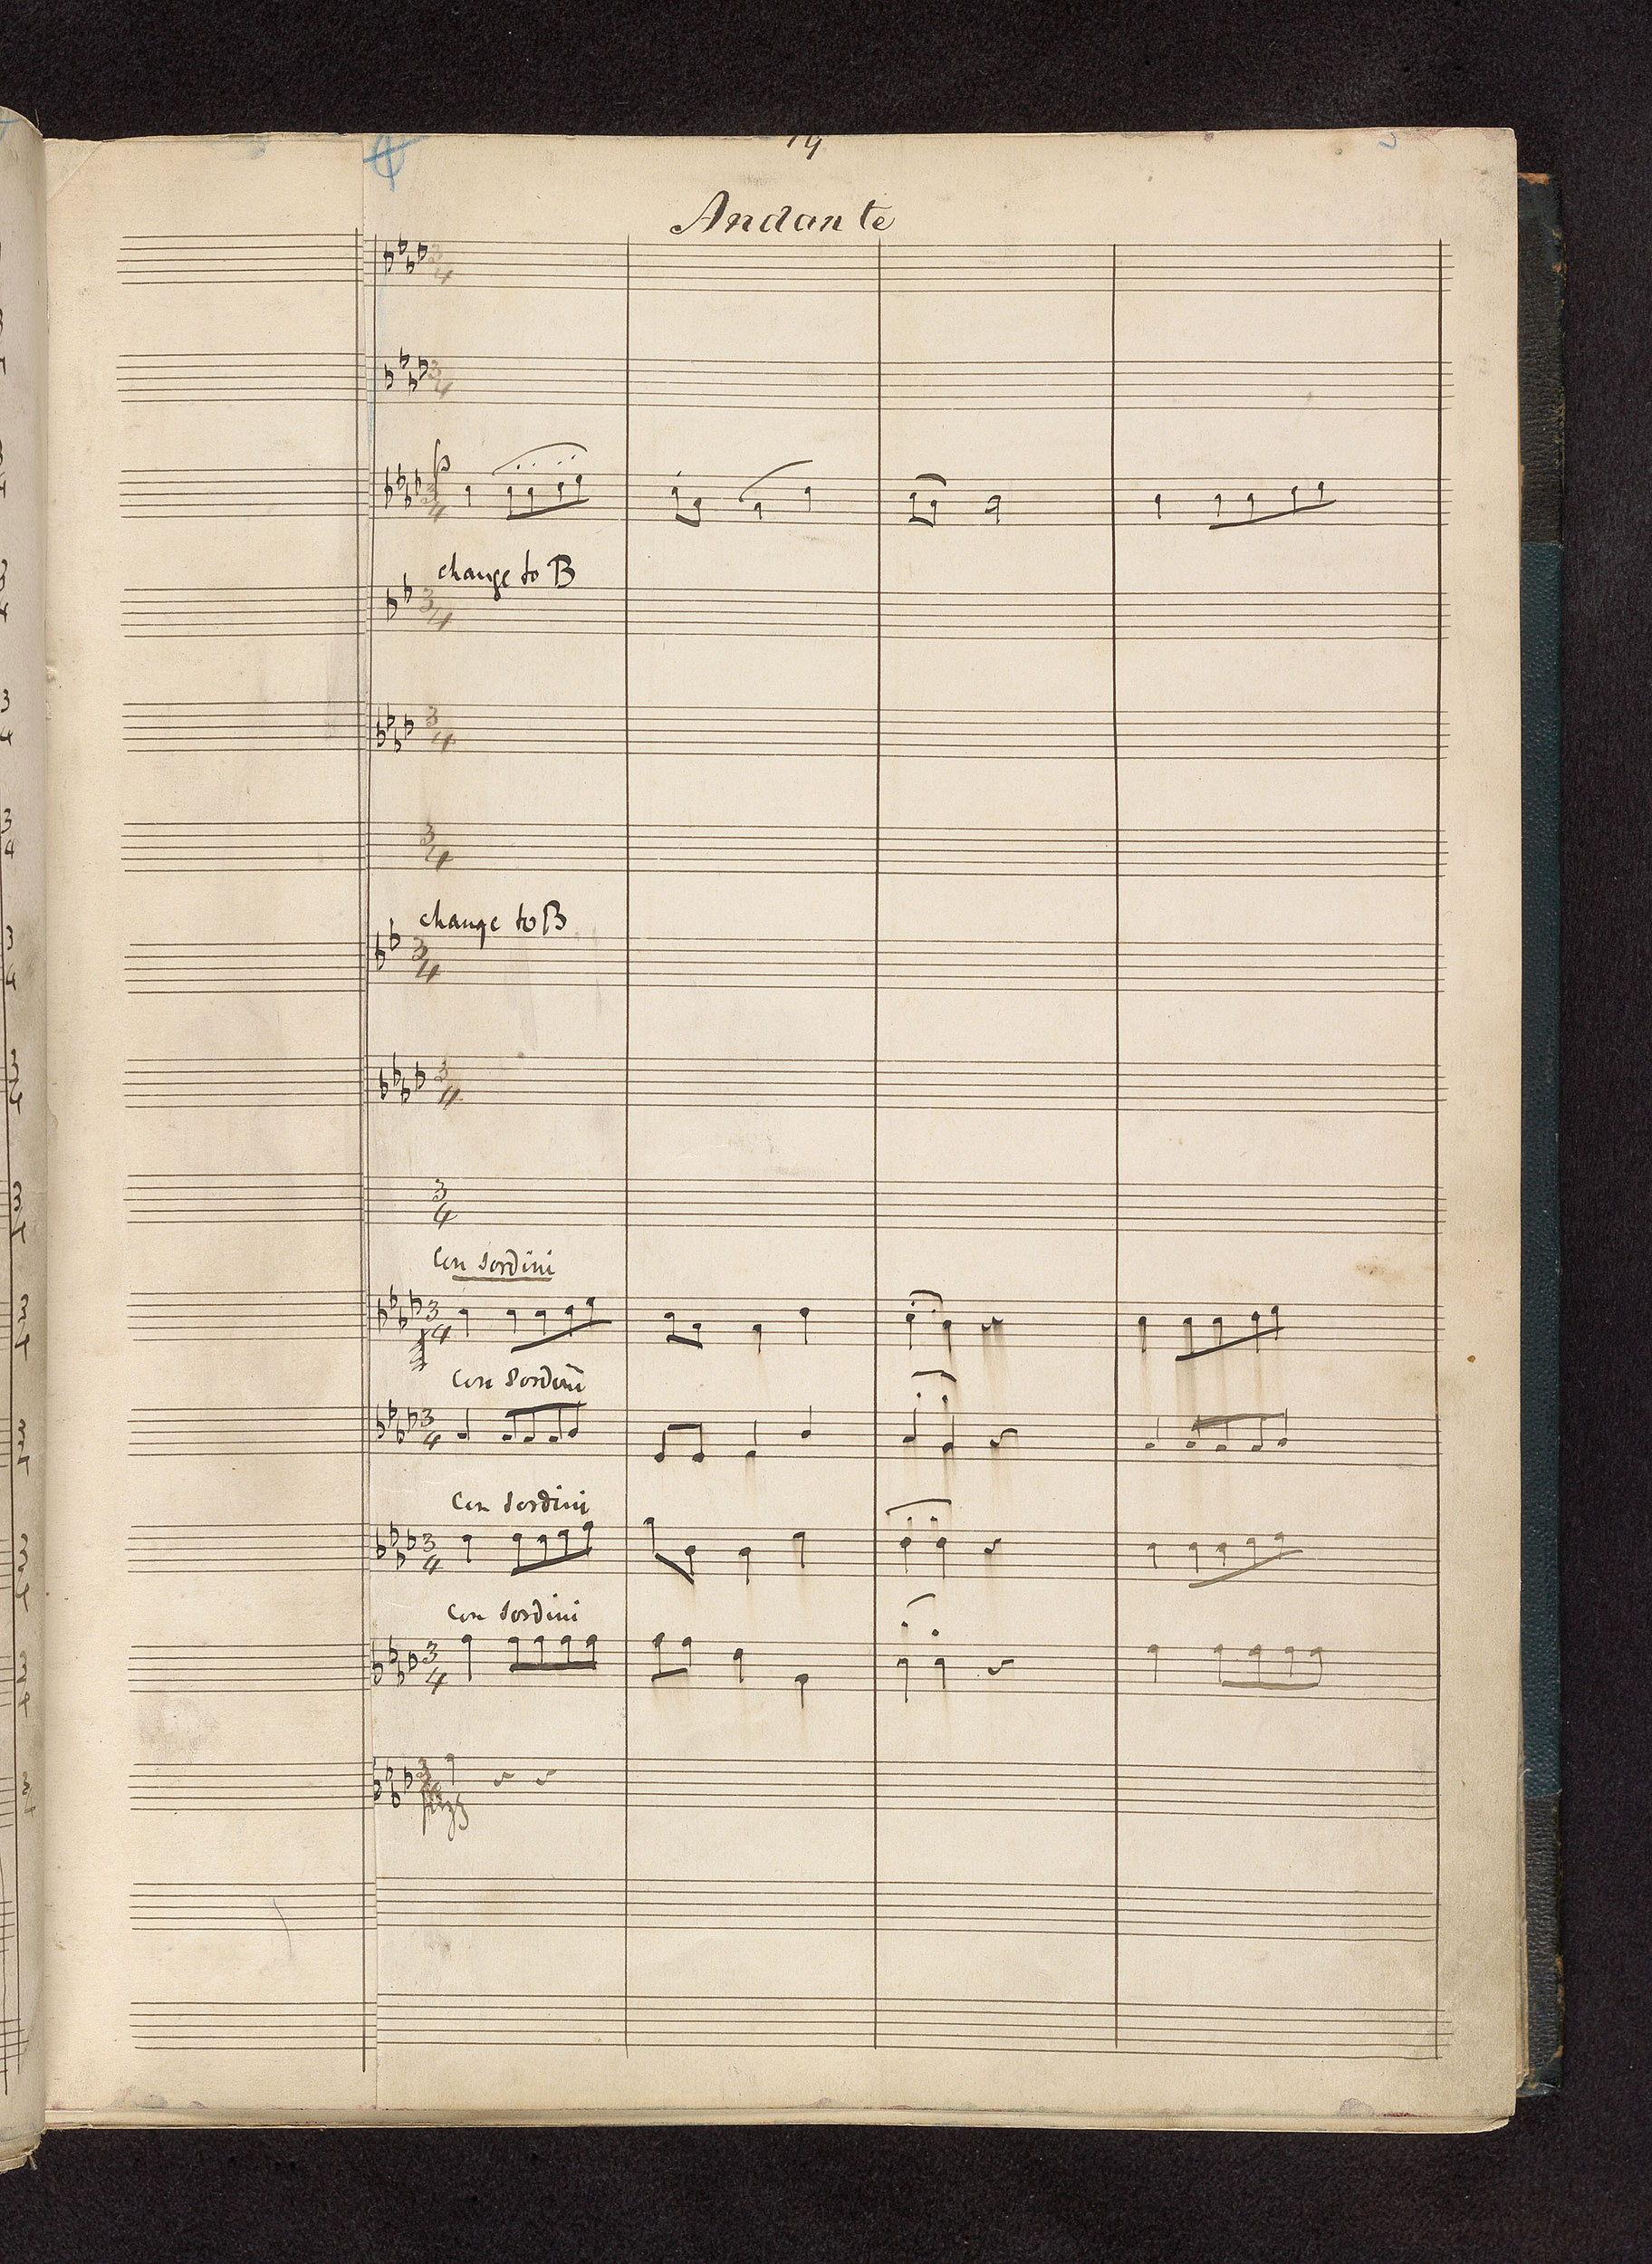 Andante
3/4
3/4
3/4
change to B
3/4
3/4
3/4
change to B
3/4
3/4
3/4
Con Sordini
3/4
Con Sordini
3/4
Con Sordini
3/4
Con Sordini
3/4
pizz